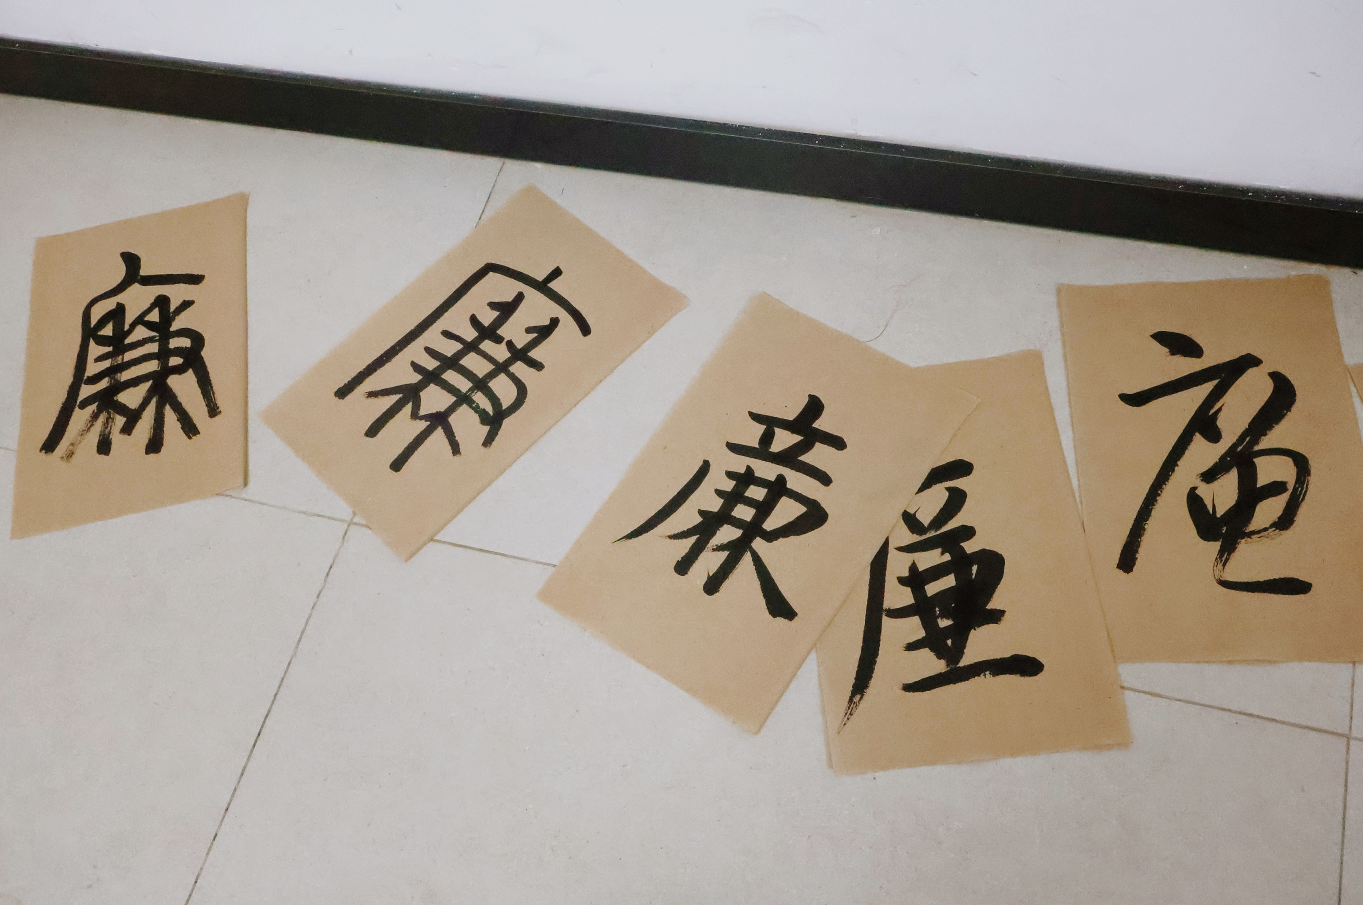 廉
廉
廉
廉
廉